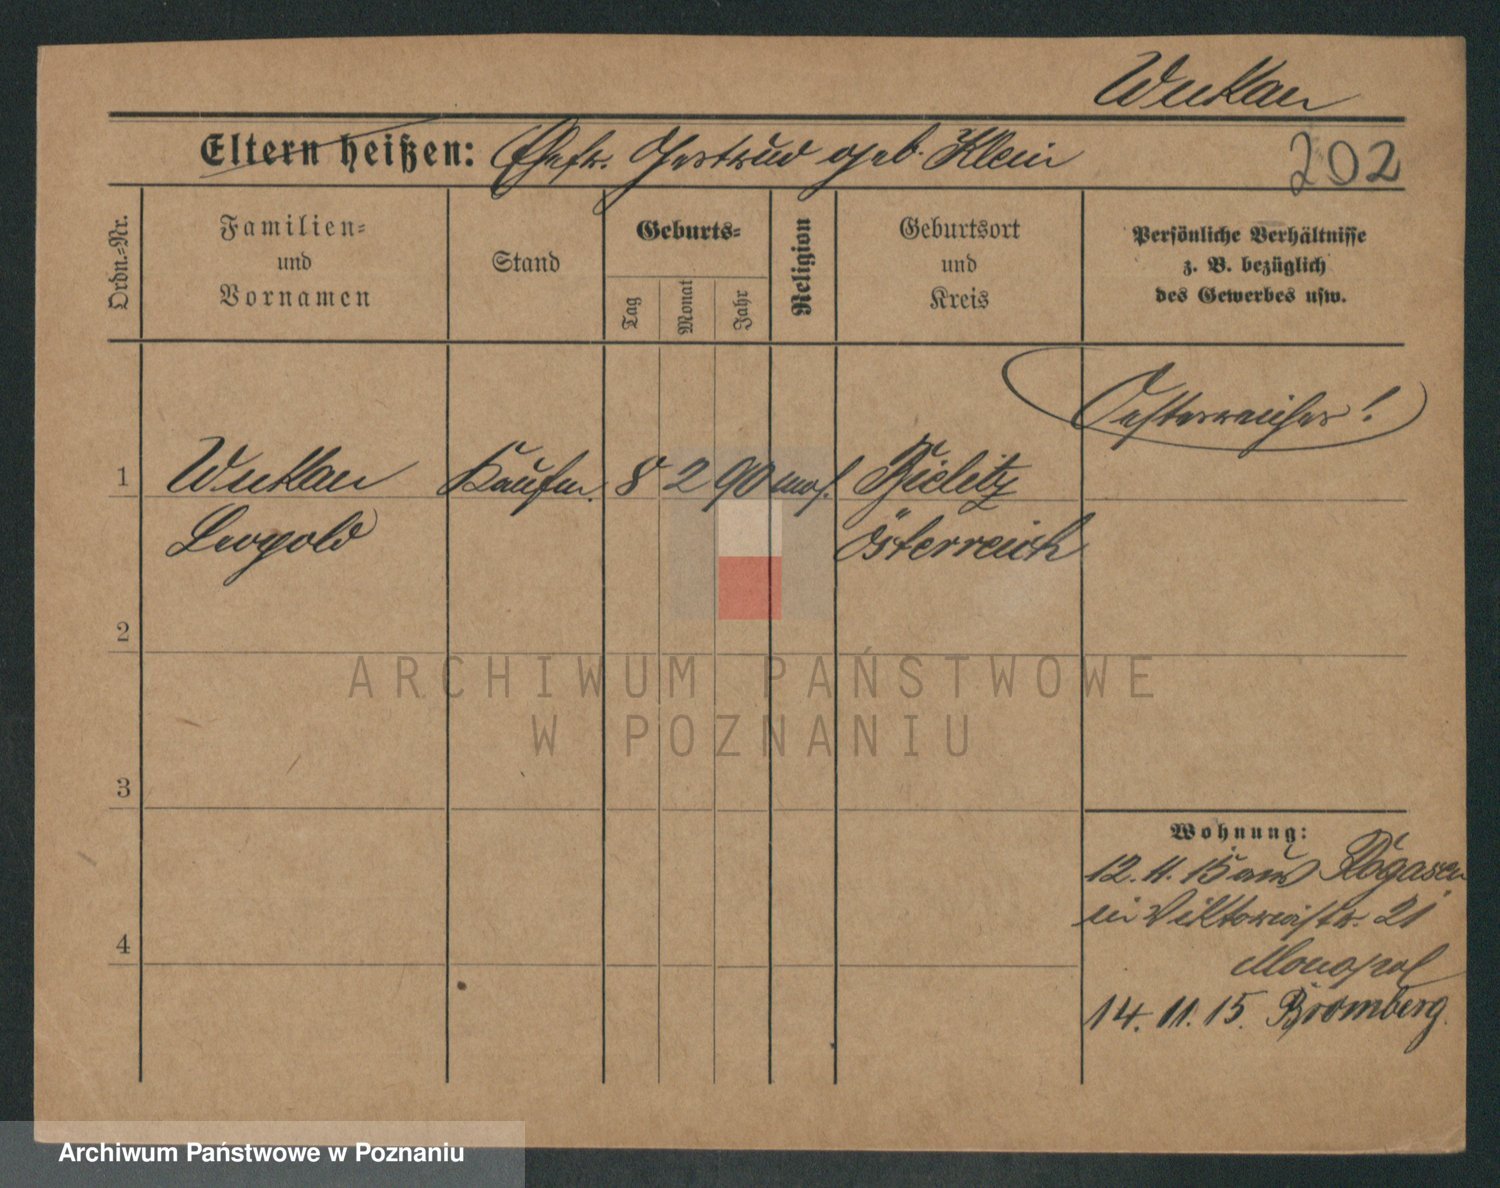 Wukau
Eltern heißen: Ehefr. Gertrud geb. Klein
202
Ordn.=Nr.
Familien=
und
Vornamen
Stand
Geburts=
Tag
Monat
Jahr
Religion
Geburtsort
und
Kreis
Persönliche Verhältnisse
z. B. bezüglich
des Gewerbes usw.
Oesterreicher!
1 Wukau Kaufm. 8 2 90 mos. Bielitz
Leopold Österreich
2
3
4
Wohnung:
12. 11. 15 aus Rogasen
in Viktoriastr. 21
Monopol
14. 11. 15. Bromberg.
ARCHIWUM PAŃSTWOWE
W POZNANIU
Archiwum Państwowe w Poznaniu